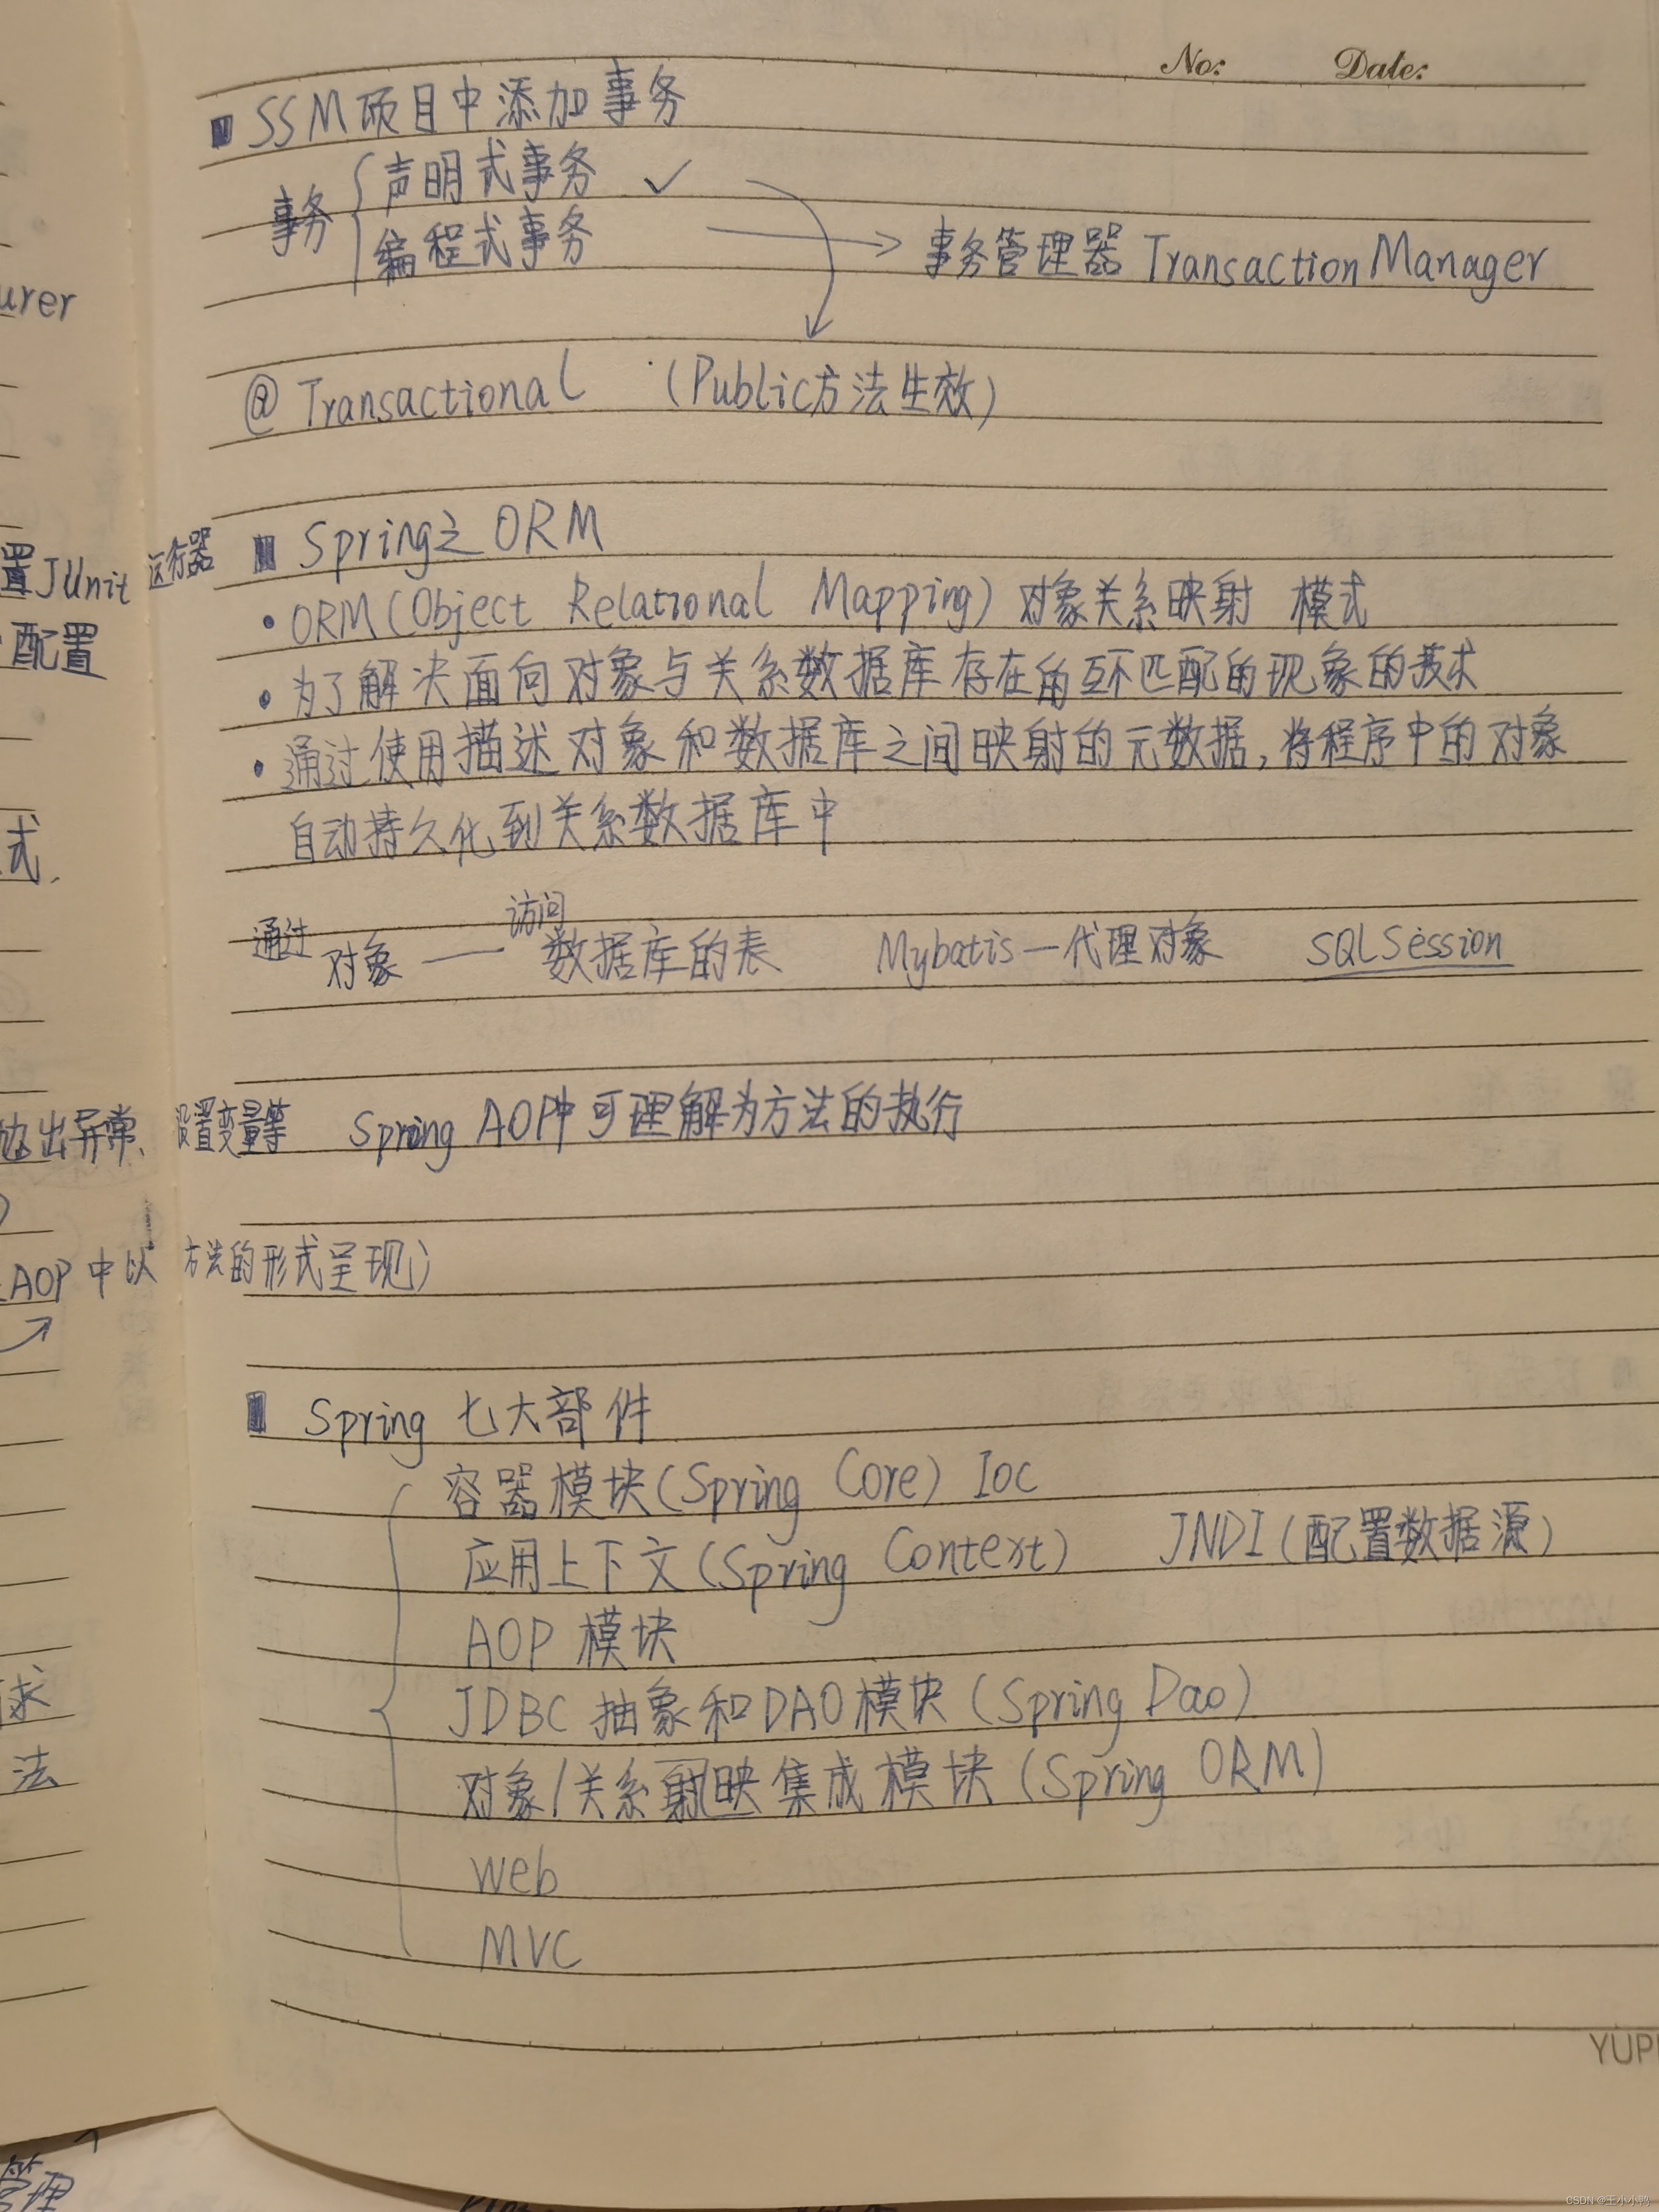 No: Date:
SSM项目中添加事务
事务 声明式事务 ✓
编程式事务
事务管理器 TransactionManager
urer
@Transactional (Public方法生效)
Spring之ORM
置JUnit 运行器
• ORM(Object Relational Mapping)对象关系映射 模式
配置
• 为了解决面向对象与关系数据库存在的互不匹配的现象的技术
• 通过使用描述对象和数据库之间映射的元数据,将程序中的对象
自动持久化到关系数据库中
式.
通过 对象 — 访问 数据库的表 Mybatis—代理对象 SQLSession
出异常、设置变量等 Spring AOP中可理解为方法的执行
AOP中以 方法的形式呈现)
Spring 七大部件
容器模块(Spring Core) Ioc
应用上下文(Spring Context) JNDI(配置数据源)
AOP 模块
求
JDBC 抽象和DAO模块(Spring Dao)
法
对象/关系射映集成模块(Spring ORM)
web
MVC
YUP
管理
CSDN @王小小鸭